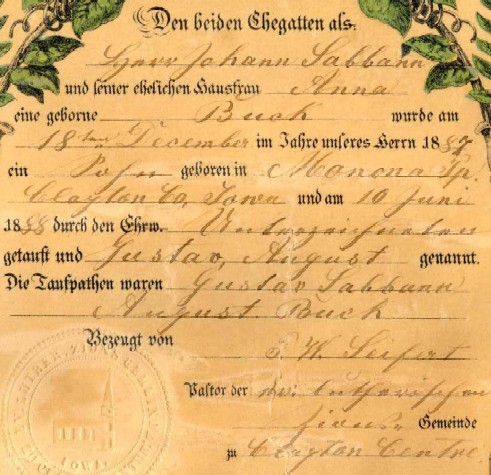 Den beiden Ehegatten als:
Herr Johann Sabbann
und seiner ehelichen Hausfrau Anna
eine geborne Buck wurde am
18ten December im Jahre unseres Herrn 1887
ein Sohn geboren in Monona Tp.
Clayton Co, Iowa und am 10 Juni
1888 durch den Ehrw. Unterzeichneten
getauft und Gustav, August genannt.
Die Taufpathen waren Gustav Sabbann
August Buck
Bezeugt von
P. W. Seifert
Pastor der ev. lutherischen
Zions Gemeinde
zu Clayton Centre
IOWA